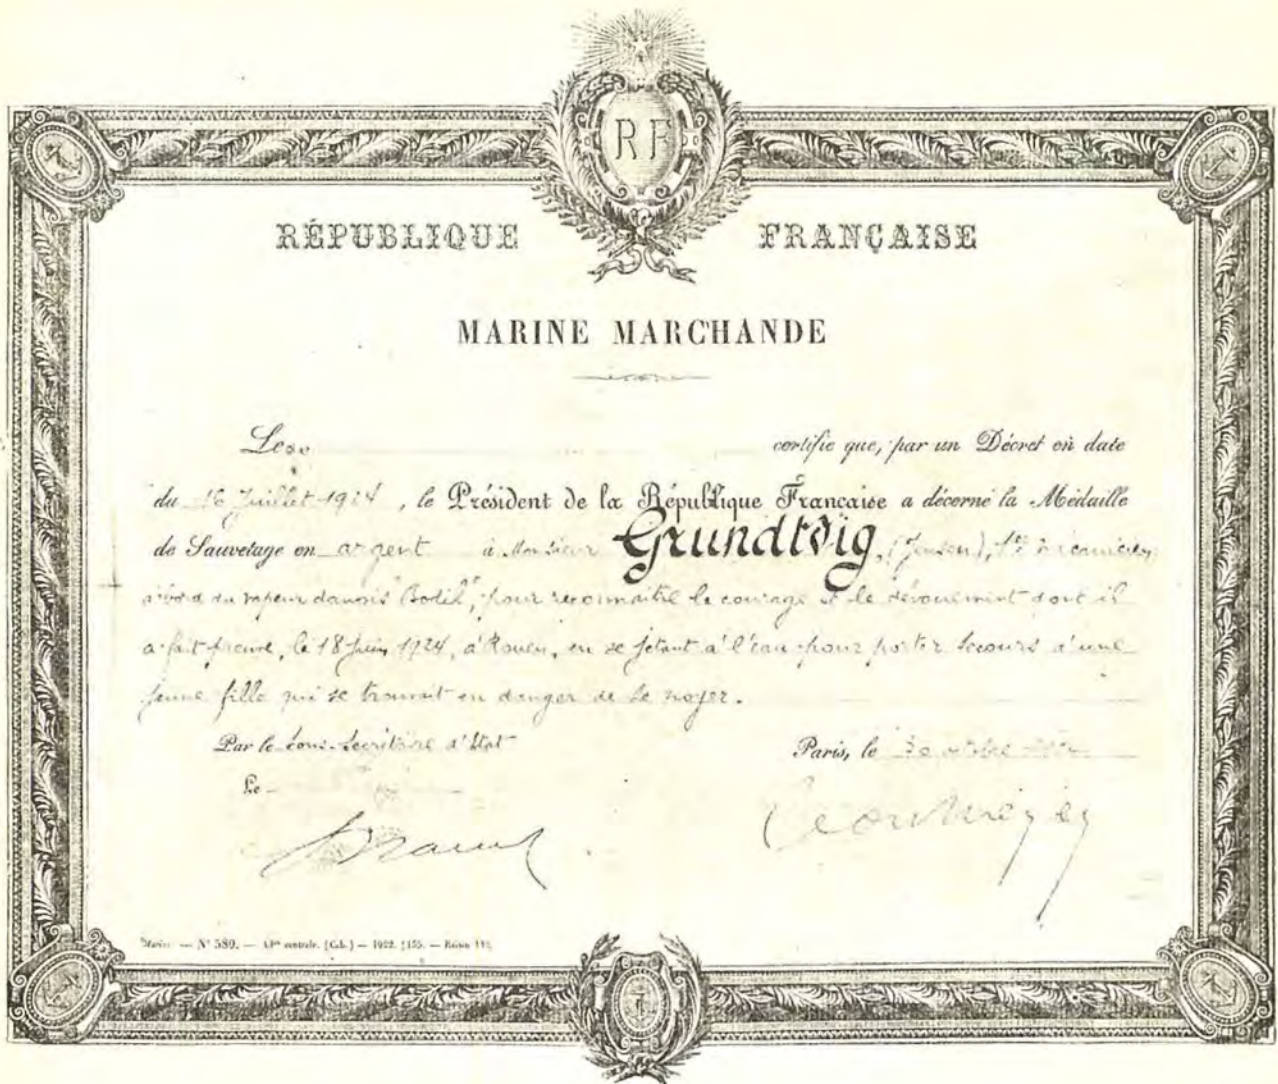 RF
RÉPUBLIQUE FRANÇAISE
MARINE MARCHANDE
certifie que, par un Décret en date
du 16 Juillet 1924, le Président de la République Française a décerné la Médaille
de Sauvetage en argent à Monsieur Grundtvig, (Jensen), 1er mécanicien
à bord du vapeur danois "Bodil", pour reconnaître le courage et le dévouement dont il
a fait preuve, le 18 Juin 1924, à Rouen, en se jetant à l'eau pour porter secours à une
jeune fille qui se trouvait en danger de se noyer.
Par le Sous-Secrétaire d'Etat
Paris, le
Le
N° 589. — centrale. — 1922.